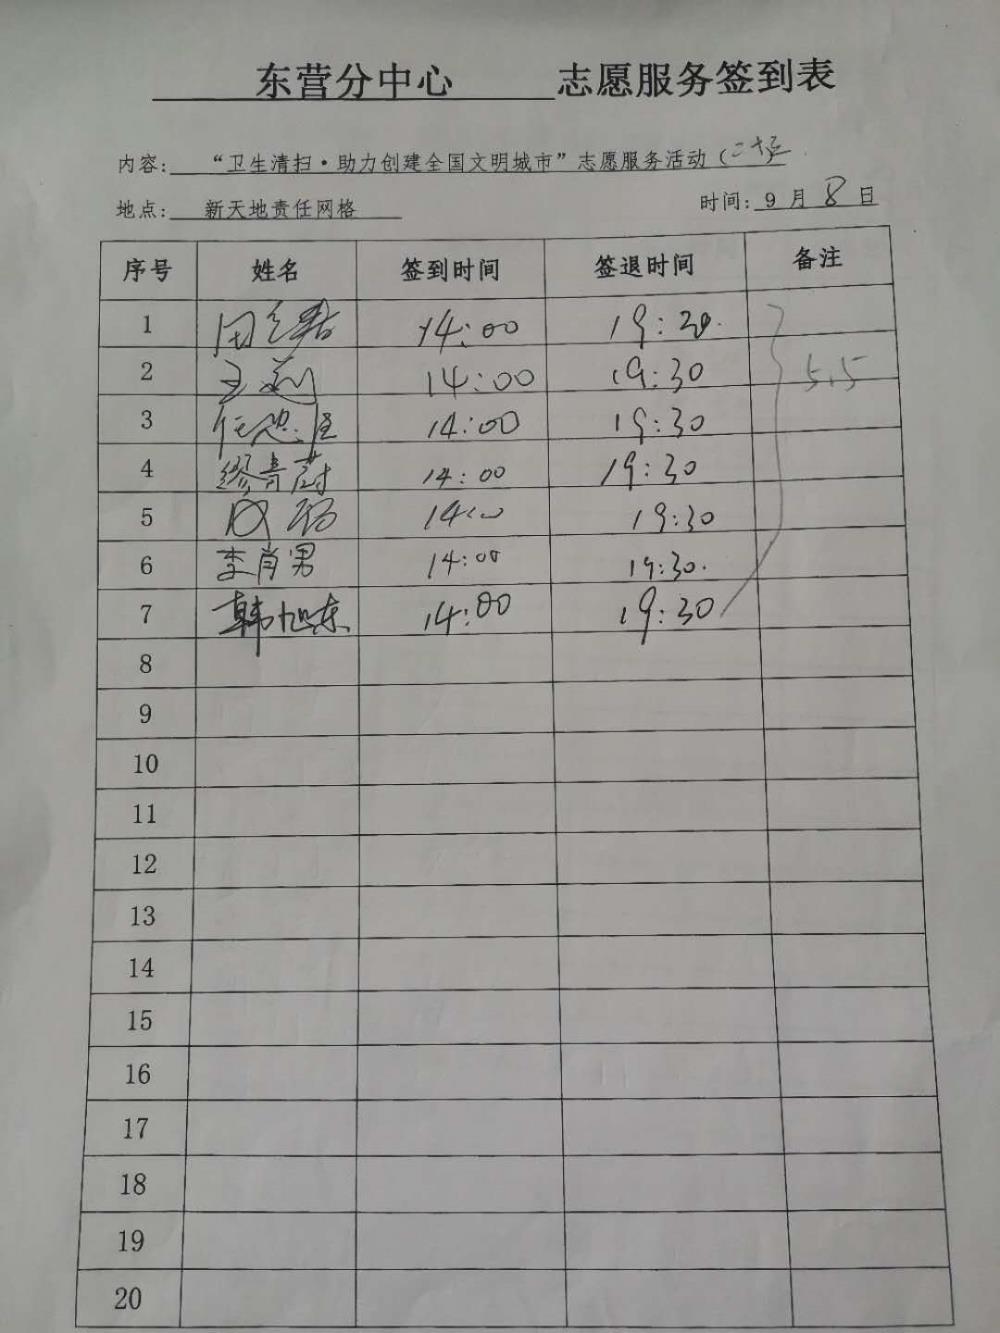 东营分中心 志愿服务签到表
内容: “卫生清扫·助力创建全国文明城市”志愿服务活动(二十
地点: 新天地责任网格 时间: 9 月 8 日
序号 姓名 签到时间 签退时间 备注
1 14:00 19:30
2 王 14:00 19:30 5.5
3 任 14:00 19:30
4 缪青蔚 14:00 19:30
5 14:00 19:30
6 李肖男 14:00 19:30
7 韩旭东 14:00 19:30
8
9
10
11
12
13
14
15
16
17
18
19
20